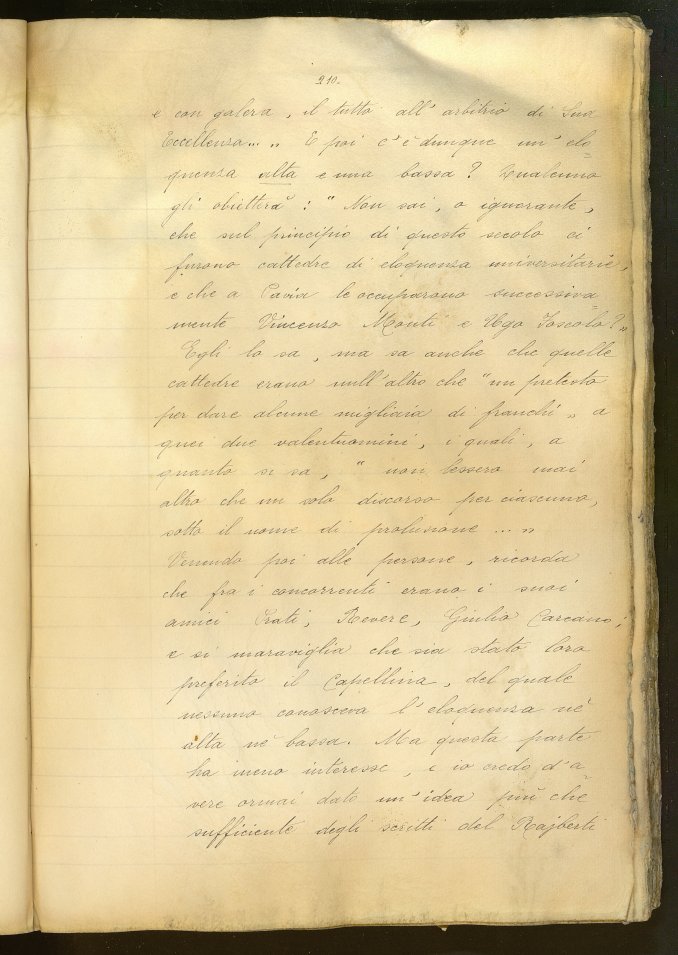 210.
e con galera, il tutto all'arbitrio di Sua
Eccellenza... „ E poi c'è dunque un'elo=
quenza alta e una bassa? Qualcuno
gli obietterà: “ Non sai, o ignorante,
che sul principio di questo secolo ci
furono cattedre di eloquenza universitarie,
e che a Pavia le occuparono successiva=
mente Vincenzo Monti e Ugo Foscolo? „
Egli lo sa, ma sa anche che quelle
cattedre erano null'altro che “ un pretesto
per dare alcune migliaia di franchi „ a
quei due valentuomini, i quali, a
quanto si sa, “ non lessero mai
altro che un solo discorso per ciascuno,
sotto il nome di prolusione ... „
Venendo poi alle persone, ricorda
che fra i concorrenti erano i suoi
amici Prati, Revere, Giulio Carcano;
e si maraviglia che sia stato loro
preferito il Capellina, del quale
nessuno conosceva l'eloquenza nè
alta nè bassa. Ma questa parte
ha meno interesse, e io credo d'a=
vere ormai dato un'idea più che
sufficiente degli scritti del Rajberti